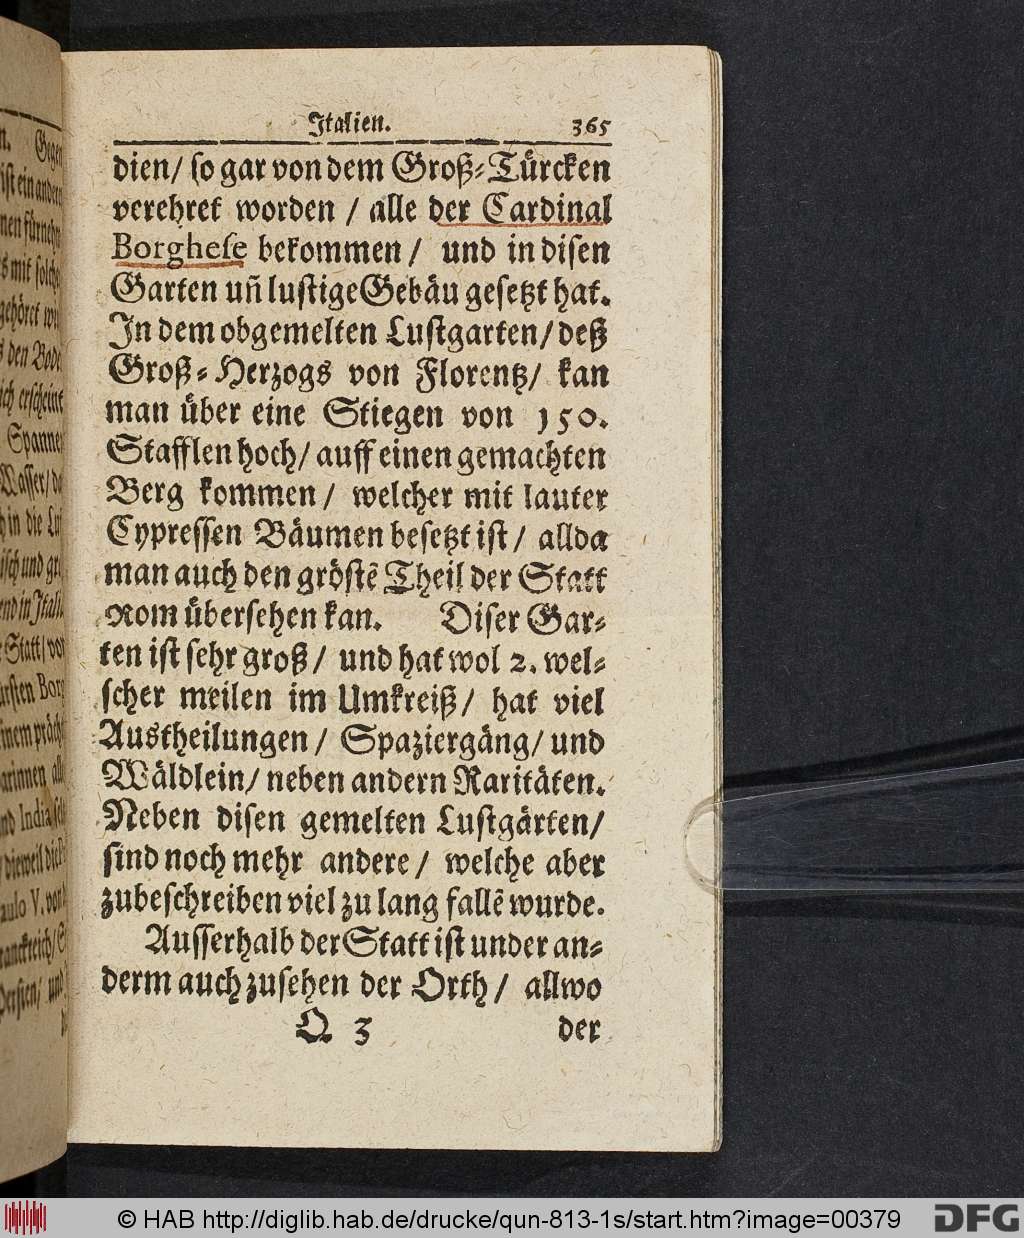 Italien. 365
dien/ so gar von dem Groß-Türcken
verehret worden / alle der Cardinal
Borghese bekommen / und in disen
Garten uñ lustige Gebäu gesetzt hat.
In dem obgemelten Lustgarten/ deß
Groß-Herzogs von Florentz/ kan
man über eine Stiegen von 150.
Stafflen hoch/ auff einen gemachten
Berg kommen / welcher mit lauter
Cypressen Bäumen besetzt ist / allda
man auch den gröstē Theil der Statt
Rom übersehen kan. Diser Gar-
ten ist sehr groß / und hat wol 2. wel-
scher meilen im Umkreiß / hat viel
Austheilungen / Spaziergäng/ und
Wäldlein/ neben andern Raritäten.
Neben disen gemelten Lustgärten/
sind noch mehr andere / welche aber
zubeschreiben viel zu lang fallē wurde.
Ausserhalb der Statt ist under an-
derm auch zusehen der Orth / allwo
Q 3 der
© HAB http://diglib.hab.de/drucke/qun-813-1s/start.htm?image=00379
DFG